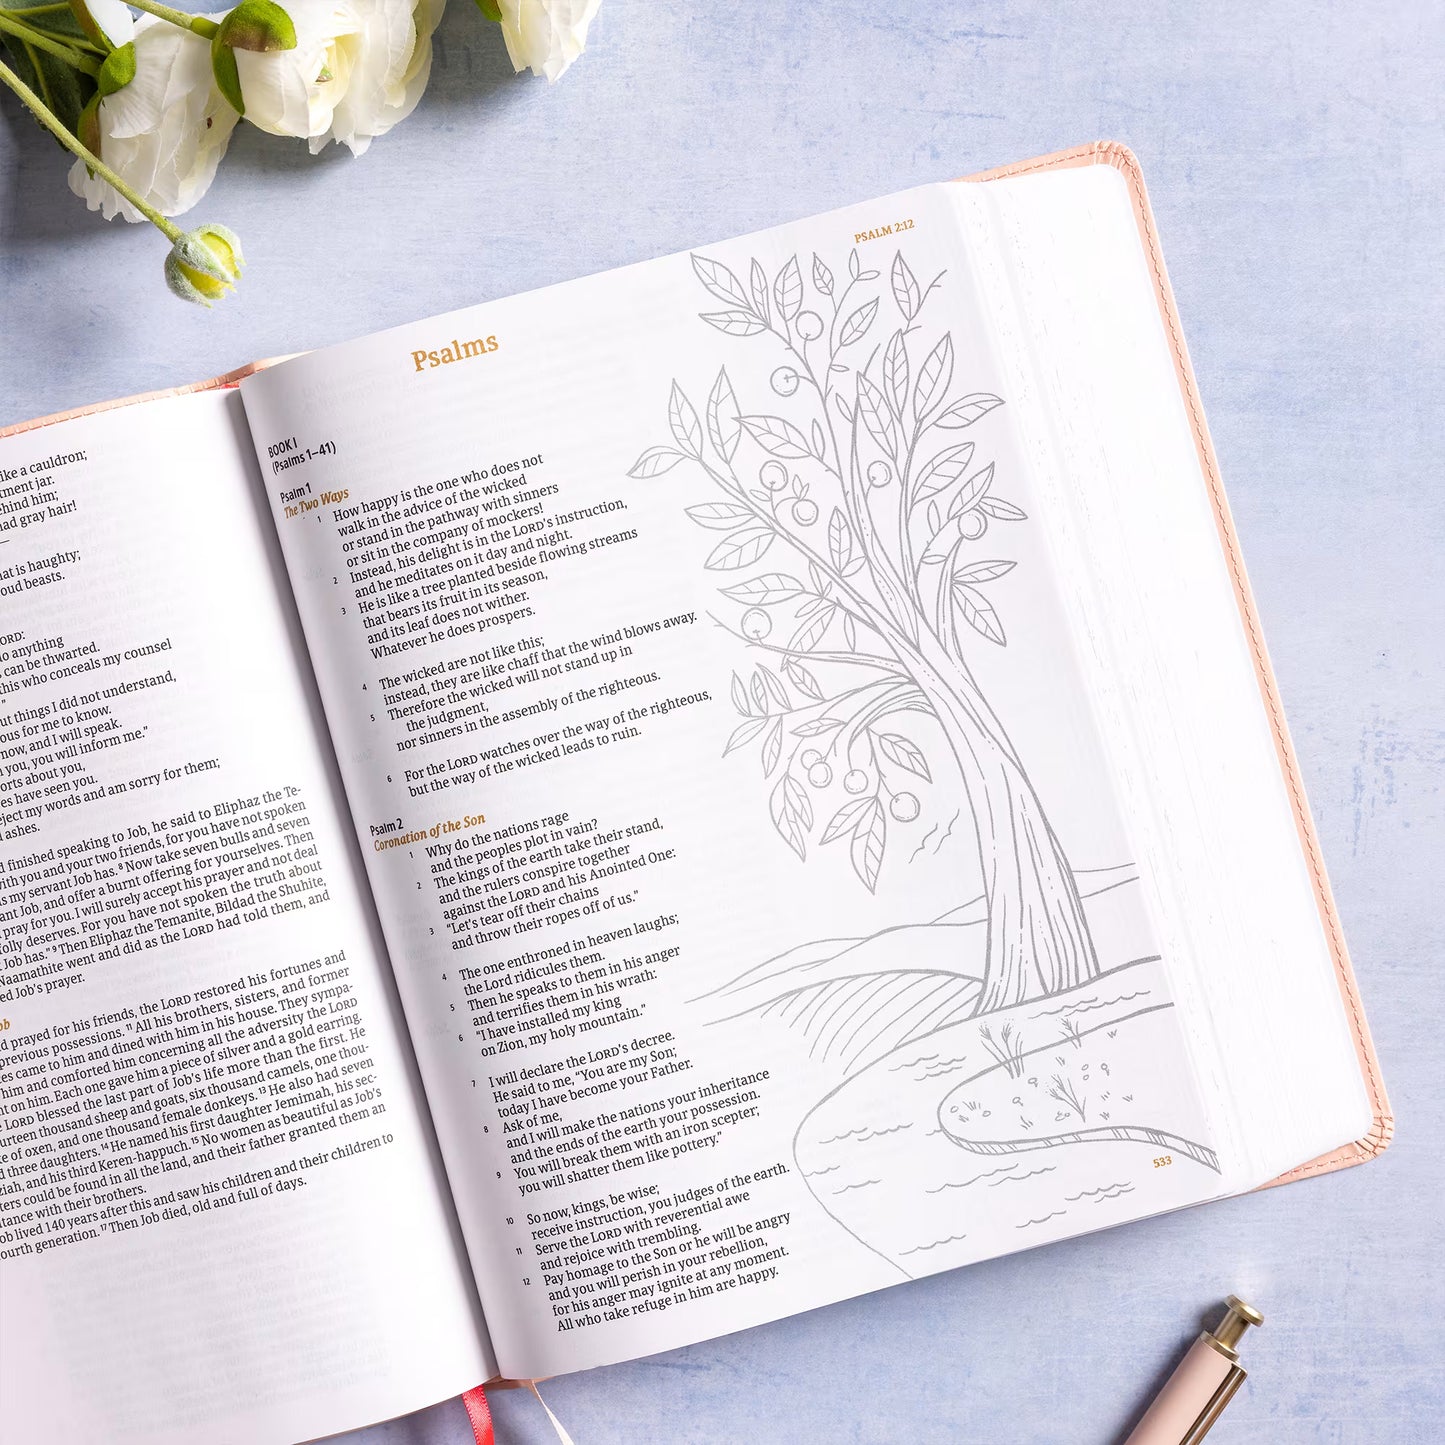 ike a cauldron;
tment jar.
ehind him;
had gray hair!
—
hat is haughty;
oud beasts.
ORD:
do anything
can be thwarted.
this who conceals my counsel
”
ut things I did not understand,
ous for me to know.
now, and I will speak.
n you, you will inform me.”
orts about you,
es have seen you.
eject my words and am sorry for them;
d ashes.
d finished speaking to Job, he said to Eliphaz the Te-
with you and your two friends, for you have not spoken
s my servant Job has. 8 Now take seven bulls and seven
ant Job, and offer a burnt offering for yourselves. Then
pray for you. I will surely accept his prayer and not deal
folly deserves. For you have not spoken the truth about
Job has.” 9 Then Eliphaz the Temanite, Bildad the Shuhite,
Naamathite went and did as the LORD had told them, and
ed Job’s prayer.
ob
d prayed for his friends, the LORD restored his fortunes and
previous possessions. 11 All his brothers, sisters, and former
es came to him and dined with him in his house. They sympa-
him and comforted him concerning all the adversity the LORD
nt on him. Each one gave him a piece of silver and a gold earring.
e LORD blessed the last part of Job’s life more than the first. He
urteen thousand sheep and goats, six thousand camels, one thou-
e of oxen, and one thousand female donkeys. 13 He also had seven
d three daughters. 14 He named his first daughter Jemimah, his sec-
ziah, and his third Keren-happuch. 15 No women as beautiful as Job’s
ters could be found in all the land, and their father granted them an
itance with their brothers.
ob lived 140 years after this and saw his children and their children to
ourth generation. 17 Then Job died, old and full of days.
PSALM 2:12
Psalms
BOOK I
(Psalms 1–41)
Psalm 1
The Two Ways
1 How happy is the one who does not
walk in the advice of the wicked
or stand in the pathway with sinners
or sit in the company of mockers!
2 Instead, his delight is in the LORD’s instruction,
and he meditates on it day and night.
3 He is like a tree planted beside flowing streams
that bears its fruit in its season,
and its leaf does not wither.
Whatever he does prospers.
4 The wicked are not like this;
instead, they are like chaff that the wind blows away.
5 Therefore the wicked will not stand up in
the judgment,
nor sinners in the assembly of the righteous.
6 For the LORD watches over the way of the righteous,
but the way of the wicked leads to ruin.
Psalm 2
Coronation of the Son
1 Why do the nations rage
and the peoples plot in vain?
2 The kings of the earth take their stand,
and the rulers conspire together
against the LORD and his Anointed One:
3 “Let’s tear off their chains
and throw their ropes off of us.”
4 The one enthroned in heaven laughs;
the Lord ridicules them.
5 Then he speaks to them in his anger
and terrifies them in his wrath:
6 “I have installed my king
on Zion, my holy mountain.”
7 I will declare the LORD’s decree.
He said to me, “You are my Son;
today I have become your Father.
8 Ask of me,
and I will make the nations your inheritance
and the ends of the earth your possession.
9 You will break them with an iron scepter;
you will shatter them like pottery.”
10 So now, kings, be wise;
receive instruction, you judges of the earth.
11 Serve the LORD with reverential awe
and rejoice with trembling.
12 Pay homage to the Son or he will be angry
and you will perish in your rebellion,
for his anger may ignite at any moment.
All who take refuge in him are happy.
533